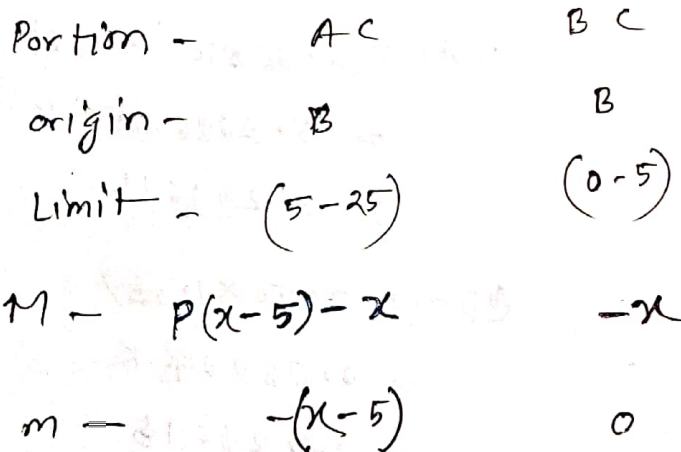 Portion - AC BC
origin - B B
Limit - (5-25) (0-5)
M - P(x-5)-x -x
m - -(x-5) 0